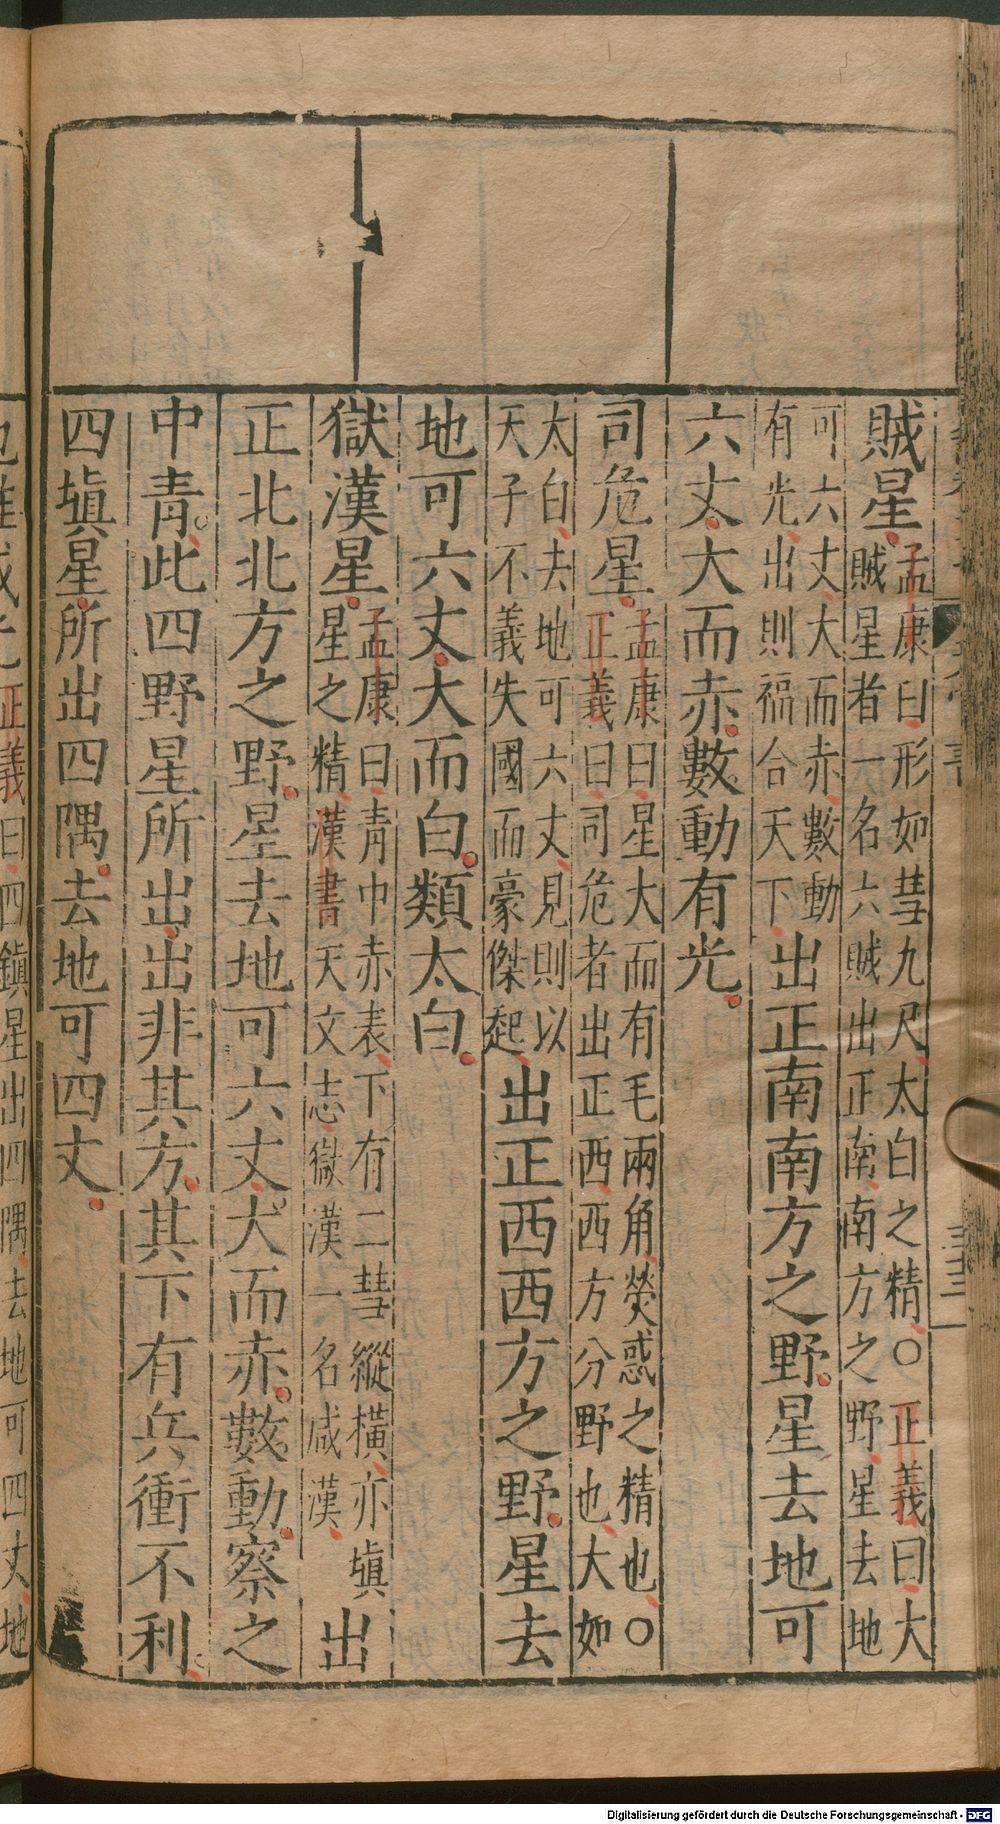 賊星孟康曰形如彗九尺太白之精○正義曰大
賊星者一名六賊出正南南方之野星去地
可六丈大而赤數動
有光出則福合天下出正南南方之野星去地可
六丈大而赤數動有光
司危星孟康曰星大而有毛兩角熒惑之精也○
正義曰司危者出正西西方分野也大如
太白去地可六丈見則以
天子不義失國而豪傑起出正西西方之野星去
地可六丈大而白類太白
獄漢星孟康曰青中赤表下有二彗縱橫亦塡
星之精漢書天文志獄漢一名咸漢出
正北北方之野星去地可六丈大而赤數動察之
中青此四野星所出出非其方其下有兵衝不利
四塡星所出四隅去地可四丈
正義曰四鎭星出四隅去地可四丈地
Digitalisierung gefördert durch die Deutsche Forschungsgemeinschaft - DFG